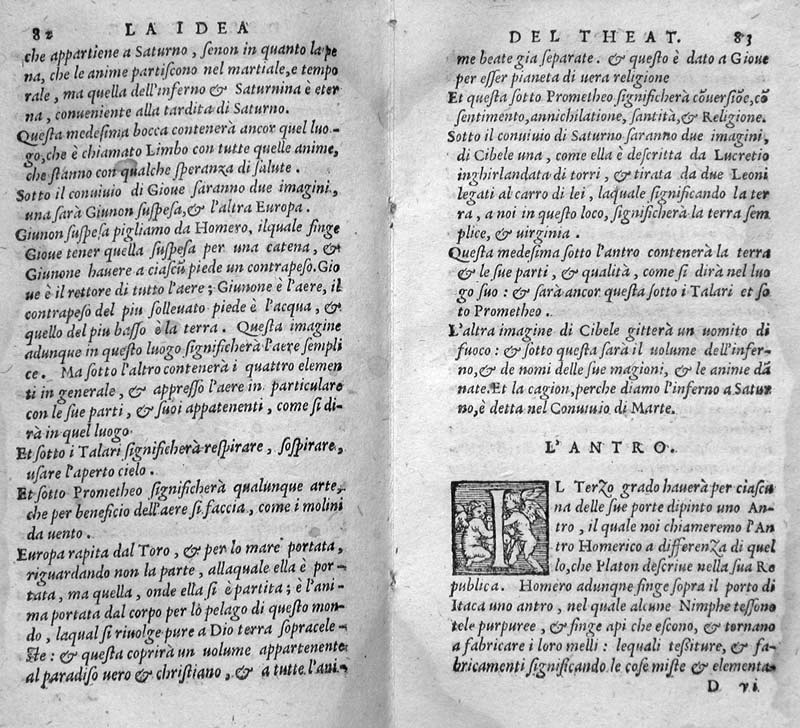 82 LA IDEA
che appartiene a Saturno, ſenon in quanto la pe
na, che le anime partiſcono nel martiale, e tempo
rale, ma quella dell'inferno & Saturnina è eter
na, conueniente alla tardita di Saturno.
Queſta medeſima bocca contenerà ancor quel luo-
go, che è chiamato Limbo con tutte quelle anime,
che ſtanno con qualche ſperanza di ſalute.
Sotto il conuiuio di Gioue ſaranno due imagini,
una ſarà Giunon ſuſpeſa, & l'altra Europa.
Giunon ſuſpeſa pigliamo da Homero, ilquale finge
Gioue tener quella ſuſpeſa per una catena, &
Giunone hauere a ciaſcũ piede un contrapeſo. Gio
ue è il rettore di tutto l'aere; Giunone è l'aere, il
contrapeſo del piu ſolleuato piede è l'acqua, &
quello del piu baſſo è la terra. Queſta imagine
adunque in queſto luogo ſignificherà l'aere ſempli
ce. Ma ſotto l'altro contenerà i quattro elemen
ti in generale, & appreſſo l'aere in particulare
con le ſue parti, & ſuoi appatenenti, come ſi di-
rà in quel luogo.
Et ſotto i Talari ſignificherà reſpirare, ſoſpirare,
uſare l'aperto cielo.
Et ſotto Prometheo ſignificherà qualunque arte,
che per beneficio dell'aere ſi faccia, come i molini
da uento.
Europa rapita dal Toro, & per lo mare portata,
riguardando non la parte, allaquale ella è por-
tata, ma quella, onde ella ſi è partita; è l'ani-
ma portata dal corpo per lo pelago di queſto mon-
do, laqual ſi riuolge pure a Dio terra ſopracele-
ſte: & queſta coprirà un uolume appartenente
al paradiſo uero & chriſtiano, & a tutte l'ani-
DEL THEAT. 83
me beate gia ſeparate. & queſto è dato a Gioue
per eſſer pianeta di uera religione
Et queſta ſotto Prometheo ſignificherà cõuerſiõe, cõ
ſentimento, annichilatione, ſantità, & Religione.
Sotto il conuiuio di Saturno ſaranno due imagini,
di Cibele una, come ella è deſcritta da Lucretio
inghirlandata di torri, & tirata da due Leoni
legati al carro di lei, laquale ſignificando la ter
ra, a noi in queſto loco, ſignificherà la terra ſem
plice, & uirginia.
Queſta medeſima ſotto l'antro contenerà la terra
& le ſue parti, & qualità, come ſi dirà nel luo
go ſuo: & ſarà ancor queſta ſotto i Talari et ſo
to Prometheo.
L'altra imagine di Cibele gitterà un uomito di
fuoco: & ſotto queſta ſarà il uolume dell'infer-
no, & de nomi delle ſue magioni, & le anime dã
nate. Et la cagion, perche diamo l'inferno a Satur
no, è detta nel Conuiuio di Marte.
L'ANTRO.
IL Terzo grado hauerà per ciaſcu
na delle ſue porte dipinto uno An-
tro, il quale noi chiameremo l'An
tro Homerico a differenza di quel
lo, che Platon deſcriue nella ſua Re
publica. Homero adunque finge ſopra il porto di
Itaca uno antro, nel quale alcune Nimphe teſſono
tele purpuree, & finge api che eſcono, & tornano
a fabricare i loro melli: lequali teſſiture, & fa-
bricamenti ſignificando le coſe miſte & elementa-
D vi